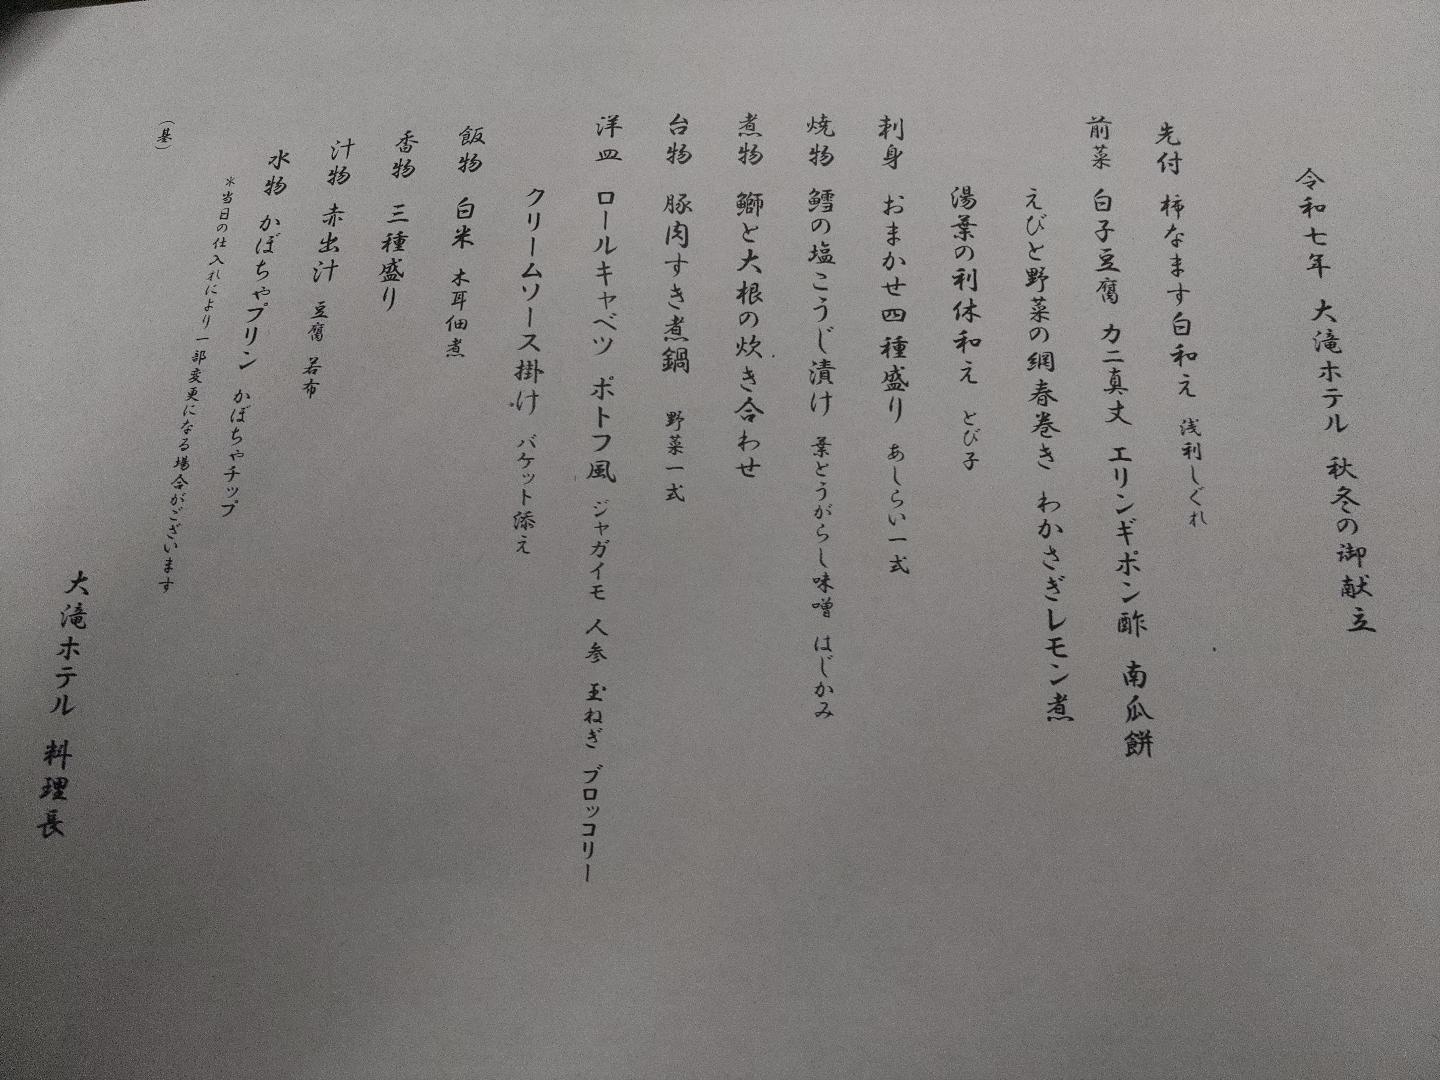 令和七年 大滝ホテル 秋冬の御献立
先付 柿なます白和え 浅利しぐれ
前菜 白子豆腐 カニ真丈 エリンギポン酢 南瓜餅
えびと野菜の網春巻き わかさぎレモン煮
湯葉の利休和え とび子
刺身 おまかせ四種盛り あしらい一式
焼物 鱈の塩こうじ漬け 葉とうがらし味噌 はじかみ
煮物 鰤と大根の炊き合わせ
台物 豚肉すき煮鍋 野菜一式
洋皿 ロールキャベツ ポトフ風 ジャガイモ 人参 玉ねぎ ブロッコリー
クリームソース掛け バケット添え
飯物 白米 木耳佃煮
香物 三種盛り
汁物 赤出汁 豆腐 若布
水物 かぼちゃプリン かぼちゃチップ
＊当日の仕入れにより一部変更になる場合がございます
（基）
大滝ホテル 料理長